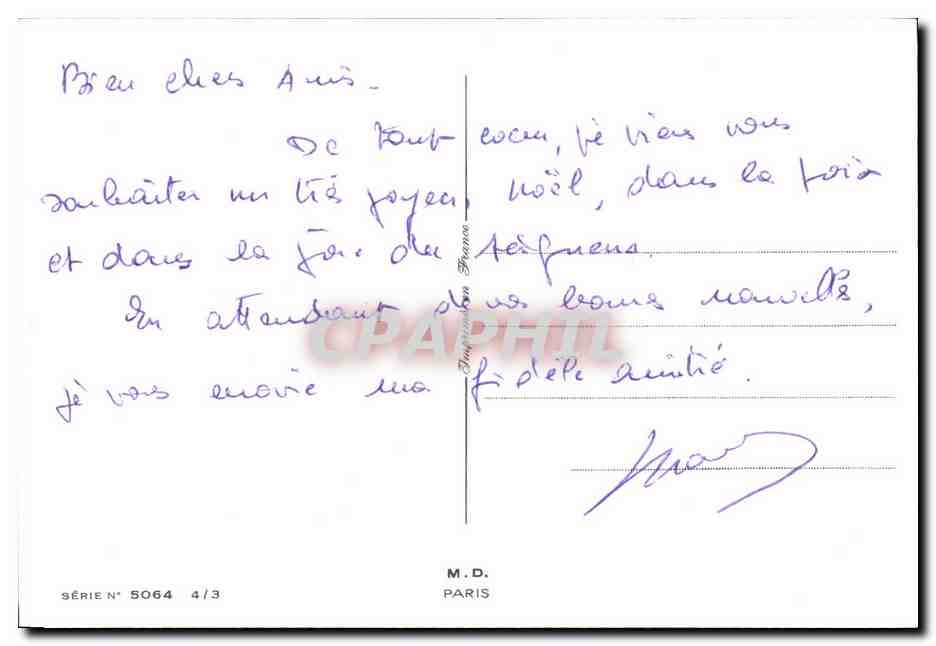 Bien chers Amis.
De tout coeur, je viens vous
souhaiter un très joyeux Noël, dans la paix
et dans la joie du Seigneur.
En attendant de vos bonnes nouvelles,
je vous envoie ma fidèle amitié.
Impression France
CPAPHIL
M.D.
PARIS
SÉRIE N° 5064 4/3